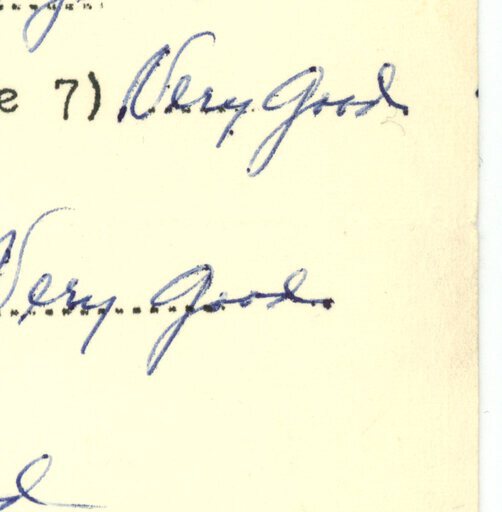 e 7) Very good.
Very good.